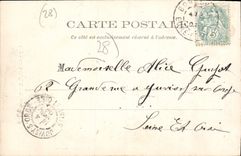 28
CARTE POSTALE
Ce côté est exclusivement réservé à l'adresse.
28
Mademoiselle Alice Guyot
62 Grande rue a Juvisy sur Orge
Seine Et Oise